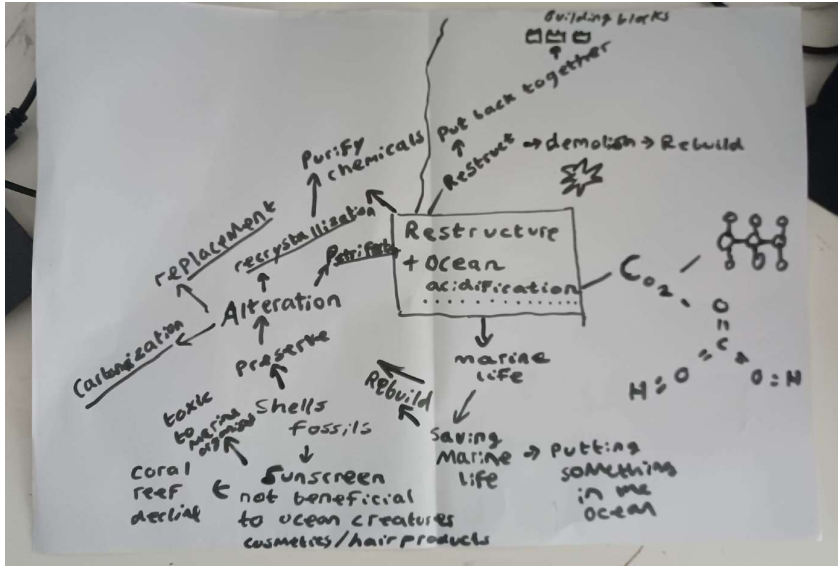 Building blocks
Put back together
Restruct → demolish → Rebuild
Purify
chemicals
replacement
recrystallization
Restructure
+ Ocean
acidification
CO2
O
C
H O O H
Alteration
Preserve
marine
life
Rebuild
toxic
to marine
organisms
Shells
fossils
Saving
Marine
life
→ Putting
something
in the
ocean
coral
reef
decline
Sunscreen
not beneficial
to ocean creatures
cosmetics/hair products